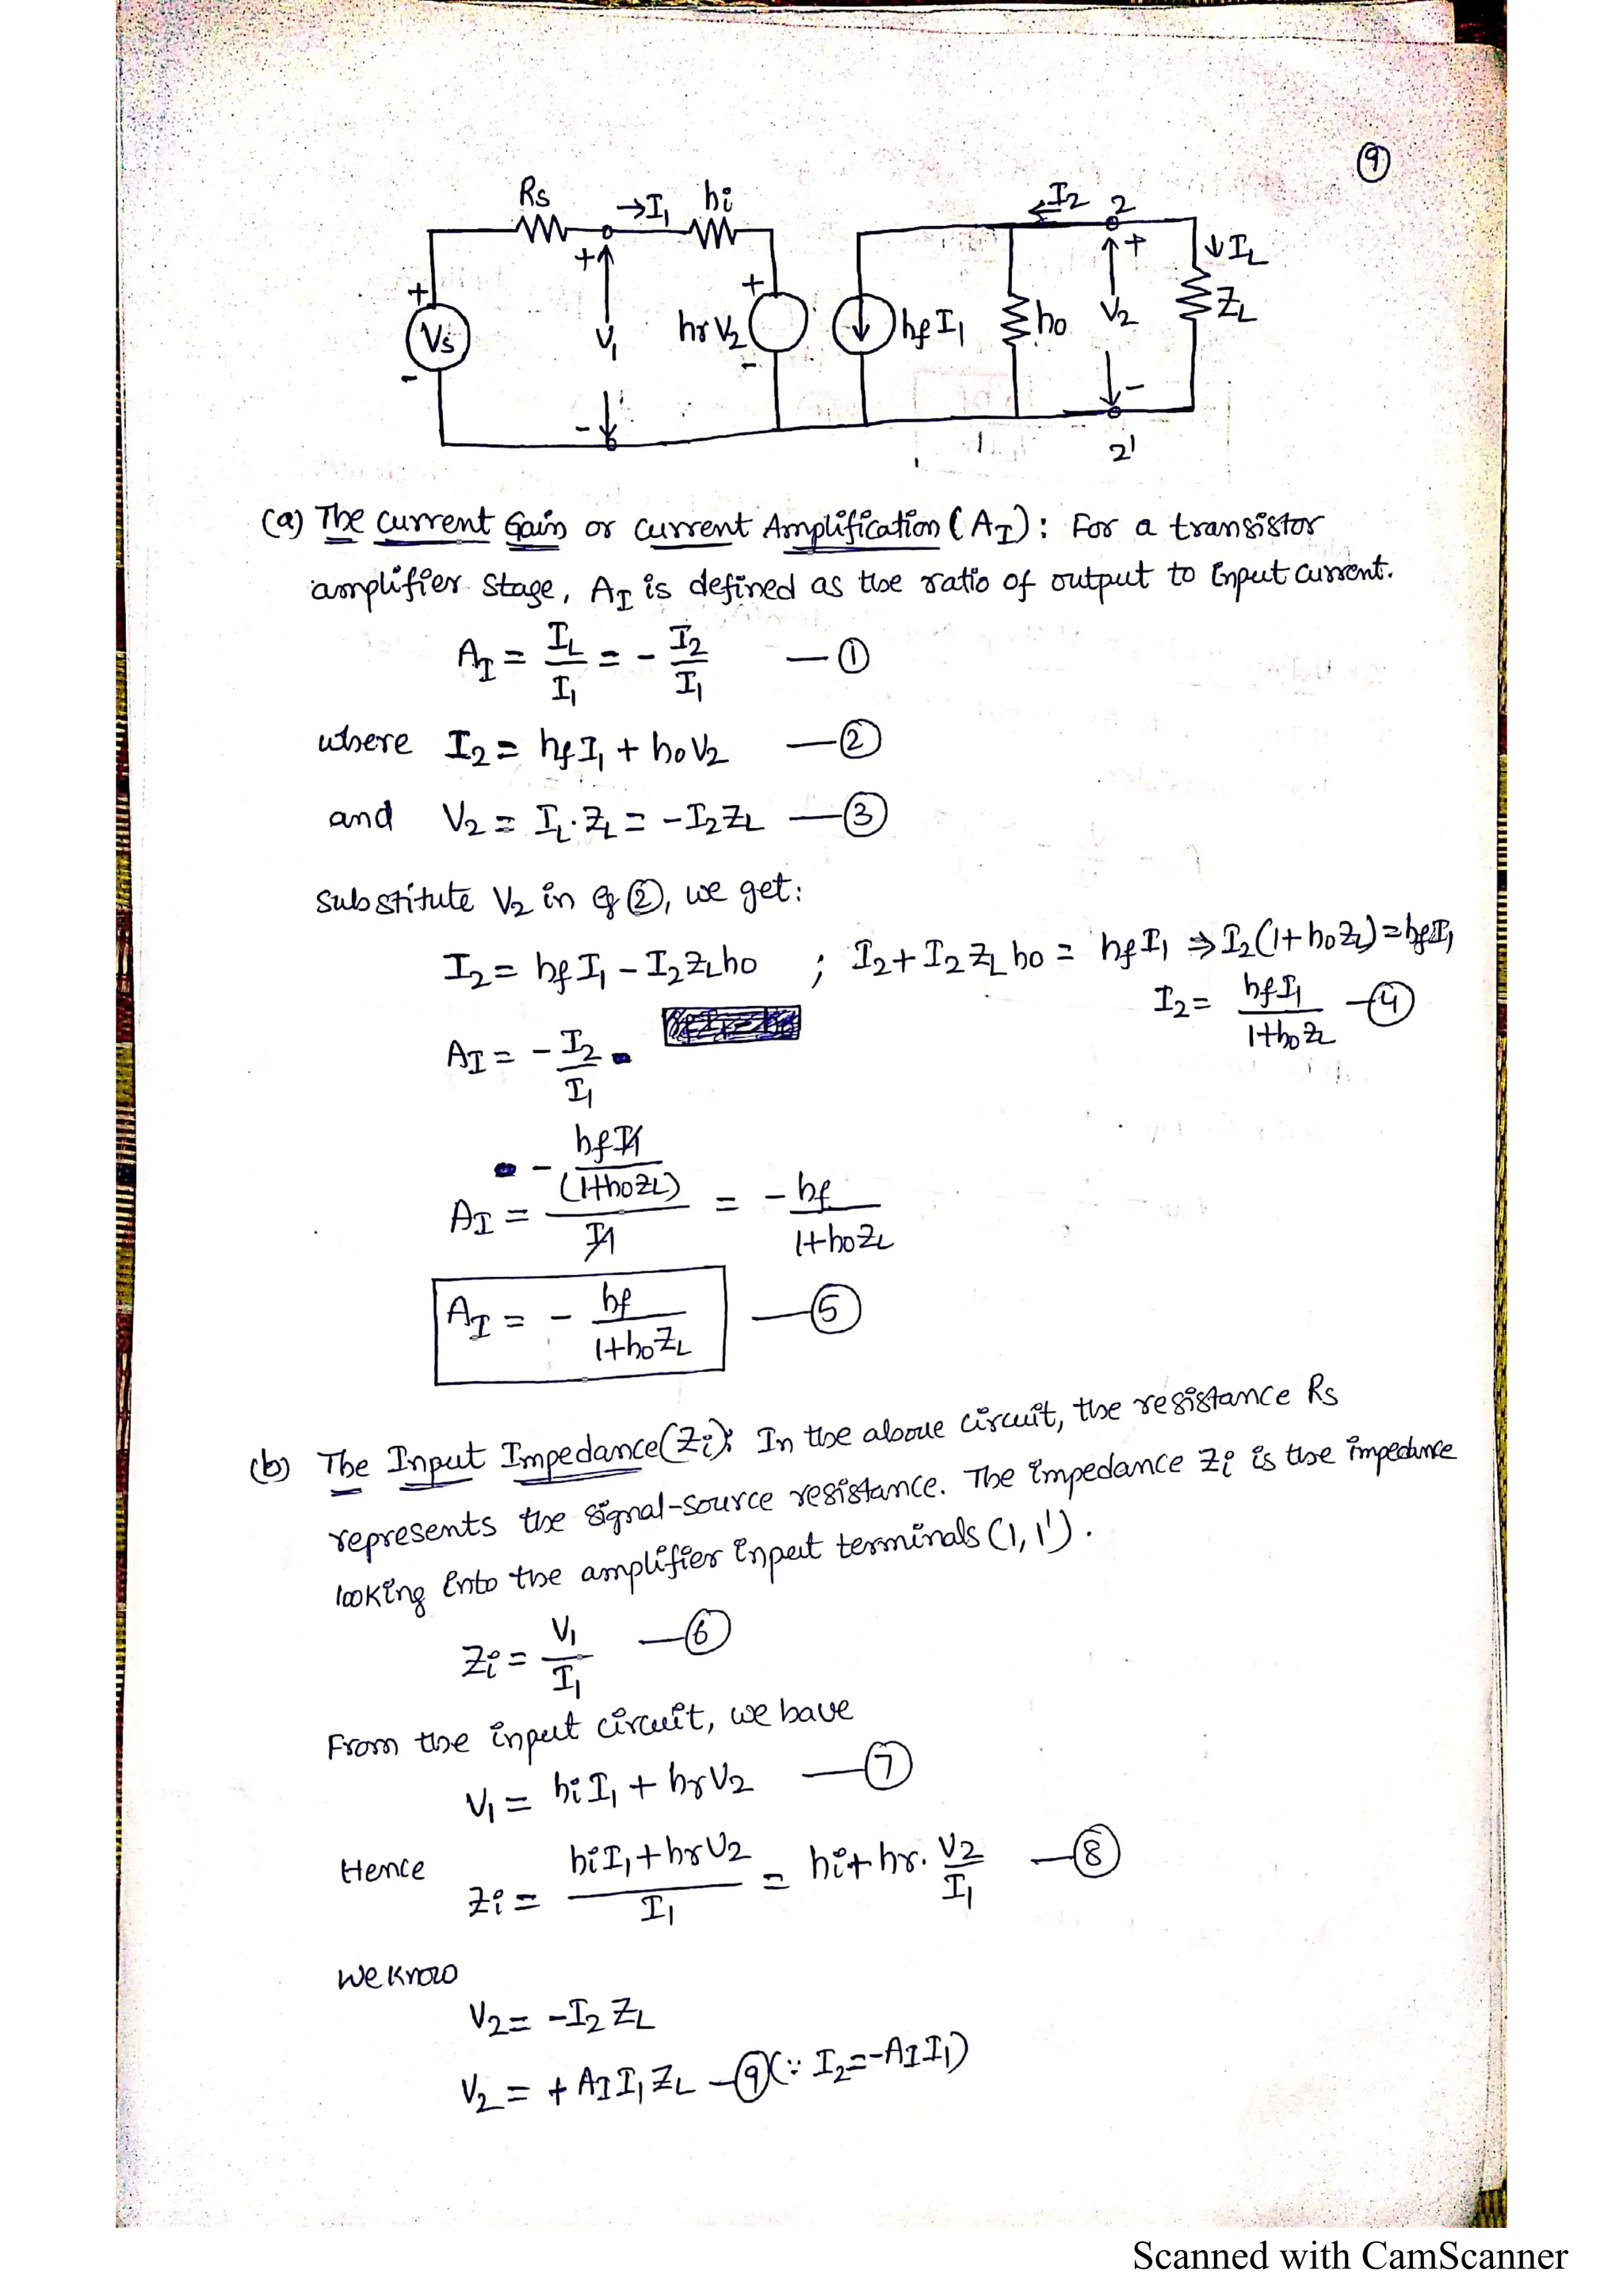 9
Rs →I₁ hi I₂ 2
+ + + ↓IL
Vs V₁ hrV₂ hfI₁ ho V₂ ZL
- - - -
2'
(a) The current Gain or current Amplification (A_I): For a transistor
amplifier stage, A_I is defined as the ratio of output to input current.
A_I = I_L/I₁ = - I₂/I₁ —①
where I₂ = hfI₁ + hoV₂ —②
and V₂ = I_L·Z_L = -I₂Z_L —③
Substitute V₂ in eq ②, we get:
I₂ = hfI₁ - I₂Z_Lho ; I₂+I₂Z_Lho = hfI₁ ⇒ I₂(1+hoZ_L)=hfI₁
I₂ = hfI₁/(1+hoZ_L) —④
A_I = - I₂/I₁
A_I = -(hfI₁/(1+hoZ_L))/I₁ = -hf/(1+hoZ_L)
A_I = - hf/(1+hoZ_L) —⑤
(b) The Input Impedance(Zi): In the above circuit, the resistance Rs
represents the signal-source resistance. The impedance Zi is the impedance
looking into the amplifier input terminals (1, 1').
Zi = V₁/I₁ —⑥
From the input circuit, we have
V₁ = hiI₁ + hrV₂ —⑦
Hence Zi = (hiI₁+hrV₂)/I₁ = hi+hr. V₂/I₁ —⑧
We know
V₂ = -I₂ Z_L
V₂ = + A_I I₁ Z_L —⑨ (∵ I₂=-A_I I₁)
Scanned with CamScanner